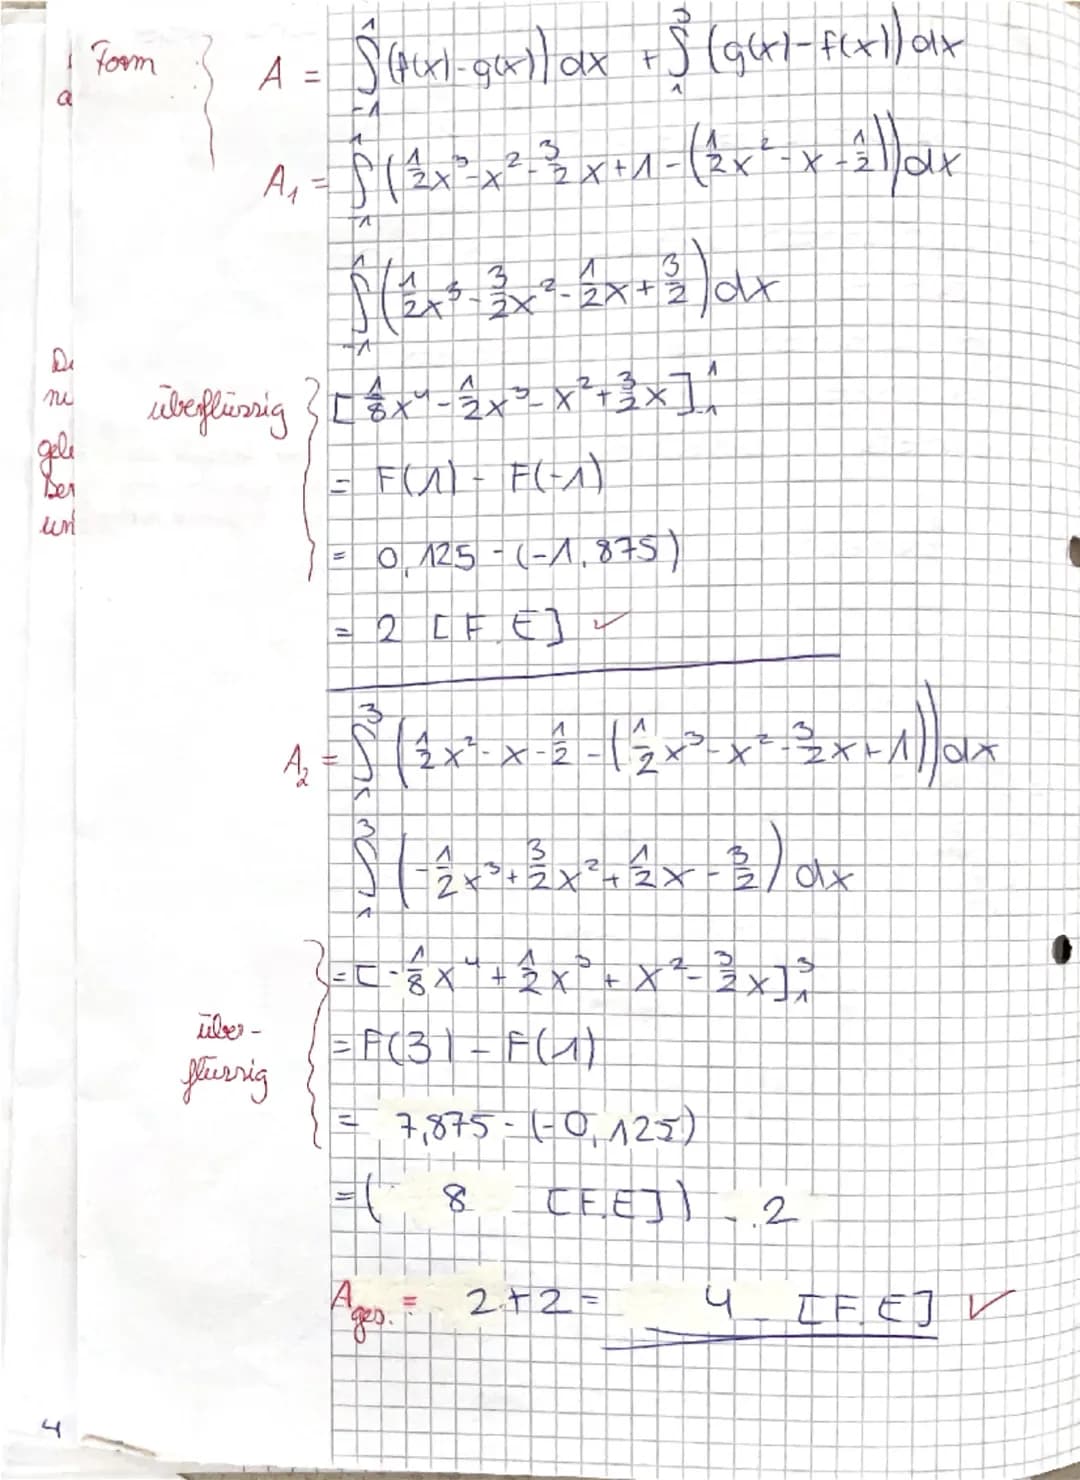 Form A = ∫₋₁¹ (f(x)-g(x)) dx + ∫₁³ (g(x)-f(x)) dx
a
A₁ = ∫₋₁¹ (1/2x³-x²-3/2x+1-(1/2x²-x-1/2)) dx
∫₋₁¹ (1/2x³-3/2x²-1/2x+3/2) dx
ne
überflüssig [1/8x⁴-1/2x³-x²+3/2x]₋₁¹
gele
= F(1) - F(-1)
Ber
un
= 0,125 - (-1,875)
= 2 [F.E] ✓
A₂ = ∫₁³ (1/2x²-x-1/2-(1/2x³-x²-3/2x+1)) dx
∫₁³ (-1/2x³+3/2x²+1/2x-3/2) dx
= [-1/8x⁴+1/2x³+x²-3/2x]₁³
über-
flüssig
= F(3) - F(1)
= 7,875 - (-0,125)
= ( 8 [F.E]) 2
A ges. = 2+2 = 4 [F.E] ✓
4